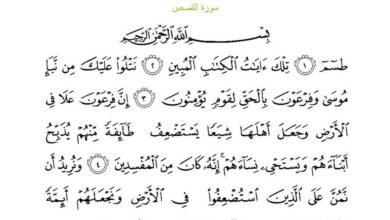 سورة القصص
بِسْمِ اللَّهِ الرَّحْمَٰنِ الرَّحِيمِ
طسٓمٓ ١ تِلْكَ ءَايَٰتُ الْكِتَٰبِ الْمُبِينِ ٢ نَتْلُوا۟ عَلَيْكَ مِن نَّبَإِ
مُوسَىٰ وَفِرْعَوْنَ بِالْحَقِّ لِقَوْمٍ يُؤْمِنُونَ ٣ إِنَّ فِرْعَوْنَ عَلَا فِي
الْأَرْضِ وَجَعَلَ أَهْلَهَا شِيَعًا يَسْتَضْعِفُ طَآئِفَةً مِّنْهُمْ يُذَبِّحُ
أَبْنَآءَهُمْ وَيَسْتَحْىِۦ نِسَآءَهُمْ ۚ إِنَّهُۥ كَانَ مِنَ الْمُفْسِدِينَ ٤ وَنُرِيدُ أَن
نَّمُنَّ عَلَى الَّذِينَ اسْتُضْعِفُوا۟ فِي الْأَرْضِ وَنَجْعَلَهُمْ أَئِمَّةً